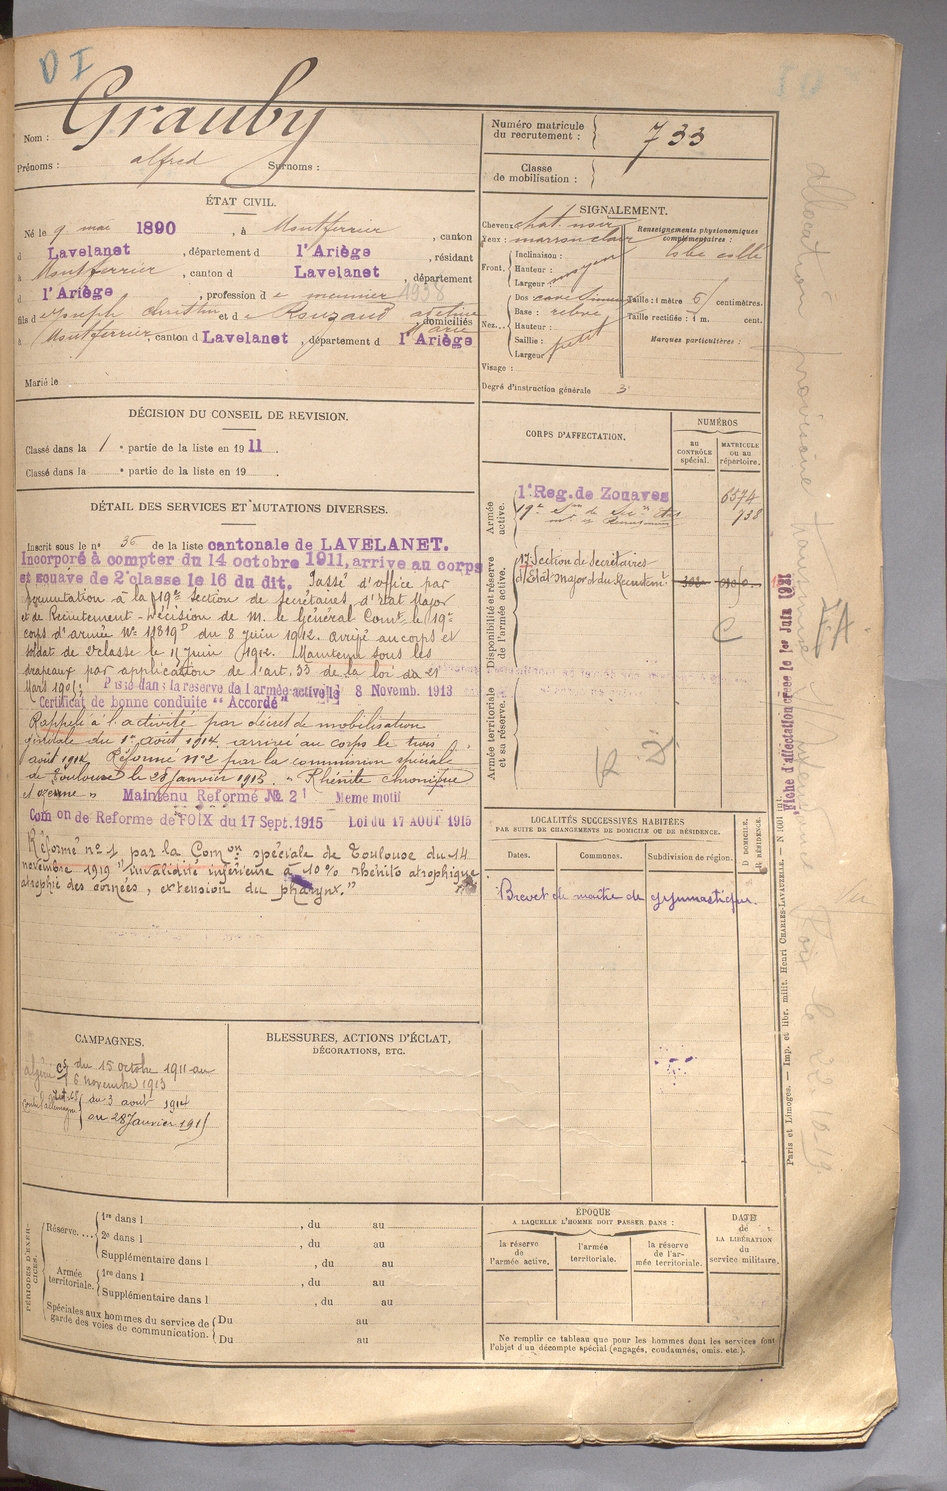 D I
Nom : Grauby
Prénoms : alfred Surnoms :
Numéro matricule du recrutement : 733
Classe de mobilisation :
ÉTAT CIVIL.
Né le 9 mai 1890, à Montferrier, canton
d Lavelanet, département d l'Ariège, résidant
à Montferrier, canton d Lavelanet, département
d l'Ariège, profession d e meunier 1938
fils d e Joseph christin et d e Rouzaud
domiciliés
à Montferrier, canton d Lavelanet, département d l'Ariège
Marié le
SIGNALEMENT.
Cheveux chat. noir
Yeux : marron clair
Front. Inclinaison :
Hauteur : moyen
Largeur :
Nez. Dos cave
Base : relevé
Hauteur :
Saillie : petit
Largeur
Visage :
Degré d'instruction générale 3
Renseignements physionomiques complémentaires :
lobe collé
Taille : 1 mètre 61 centimètres.
Taille rectifiée : 1 m. cent.
Marques particulières :
DÉCISION DU CONSEIL DE REVISION.
Classé dans la 1e partie de la liste en 1911
Classé dans la e partie de la liste en 19
DÉTAIL DES SERVICES ET MUTATIONS DIVERSES.
Inscrit sous le n° 36 de la liste cantonale de LAVELANET.
Incorporé à compter du 14 octobre 1911, arrive au corps
et zouave de 2e classe le 16 du dit. Passé d'office par
permutation à la 19e section de secrétaires d'Etat Major
et de Recrutement - Décision de M. le Général Comt le 19e
corps d'armée No 11319D du 8 Juin 1912. arrivé au corps et
soldat de 2e classe le 11 Juin 1912. Maintenu sous les
drapeaux par application de l'art. 33 de la loi du 21
Mars 1905; Passé dans la reserve de l'armée active le 8 Novemb. 1913
Certificat de bonne conduite "Accordé"
Rappelé à l'activité par décret de mobilisation
générale du 1er août 1914. arrivé au corps le trois
août 1914. Réformé no 2 par la commission spéciale
de Toulouse le 28 Janvier 1915. "Rhinite chronique
et ozenne" Maintenu Reformé No 2 Meme motif
Com on de Reforme de FOIX du 17 Sept. 1915 Loi du 17 AOUT 1915
Réformé no 1 par la Comon spéciale de Toulouse du 14
novembre 1919 "invalidité inférieure à 10 % rhinite atrophique
atrophie des cornées, extension du pharynx."
CORPS D'AFFECTATION.
NUMÉROS
AU CONTRÔLE spécial.
MATRICULE OU AU répertoire.
Armée active.
1e Reg. de Zouaves 6574
19e Son de Secres d'Etat 738
mor et Recrutement
Disponibilité et réserve de l'armée active.
17 Section de Secrétaires
d'Etat Major et du Recrutemt
Armée territoriale et sa réserve.
LOCALITÉS SUCCESSIVES HABITÉES
PAR SUITE DE CHANGEMENTS DE DOMICILE OU DE RÉSIDENCE.
Dates. Communes. Subdivision de région. D DOMICILE. R RÉSIDENCE.
Brevet de maître de gymnastique.
CAMPAGNES.
Algérie CS du 15 octobre 1911 au
6 novembre 1913
Contre l'Allemagne du 3 août 1914
au 28 Janvier 1915
BLESSURES, ACTIONS D'ÉCLAT,
DÉCORATIONS, ETC.
PÉRIODES D'EXERCICES.
Réserve....
1re dans l , du au
2e dans l , du au
Supplémentaire dans l , du au
Armée territoriale.
1re dans l , du au
Supplémentaire dans l , du au
Spéciales aux hommes du service de garde des voies de communication.
Du au
Du au
ÉPOQUE
A LAQUELLE L'HOMME DOIT PASSER DANS :
la réserve de l'armée active.
l'armée territoriale.
la réserve de l'armée territoriale.
DATE de LA LIBÉRATION du service militaire.
Ne remplir ce tableau que pour les hommes dont les services font
l'objet d'un décompte spécial (engagés, condamnés, omis, etc.).
Paris et Limoges. — Imp. et libr. milit. Henri CHARLES-LAVAUZELLE. — N 1001
Fiche d'affectation créée le 1er Juin 1921
allocation provisoire transmise Intendance Foix le